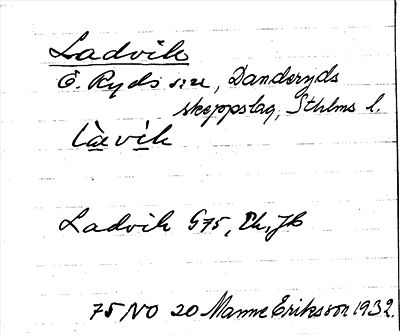 Ladvik
Ö. Ryds sn, Danderyds
skeppslag, Sthlms l.
làvik
Ladvik G75,
75 NO 20 Manne Eriksson 1932.